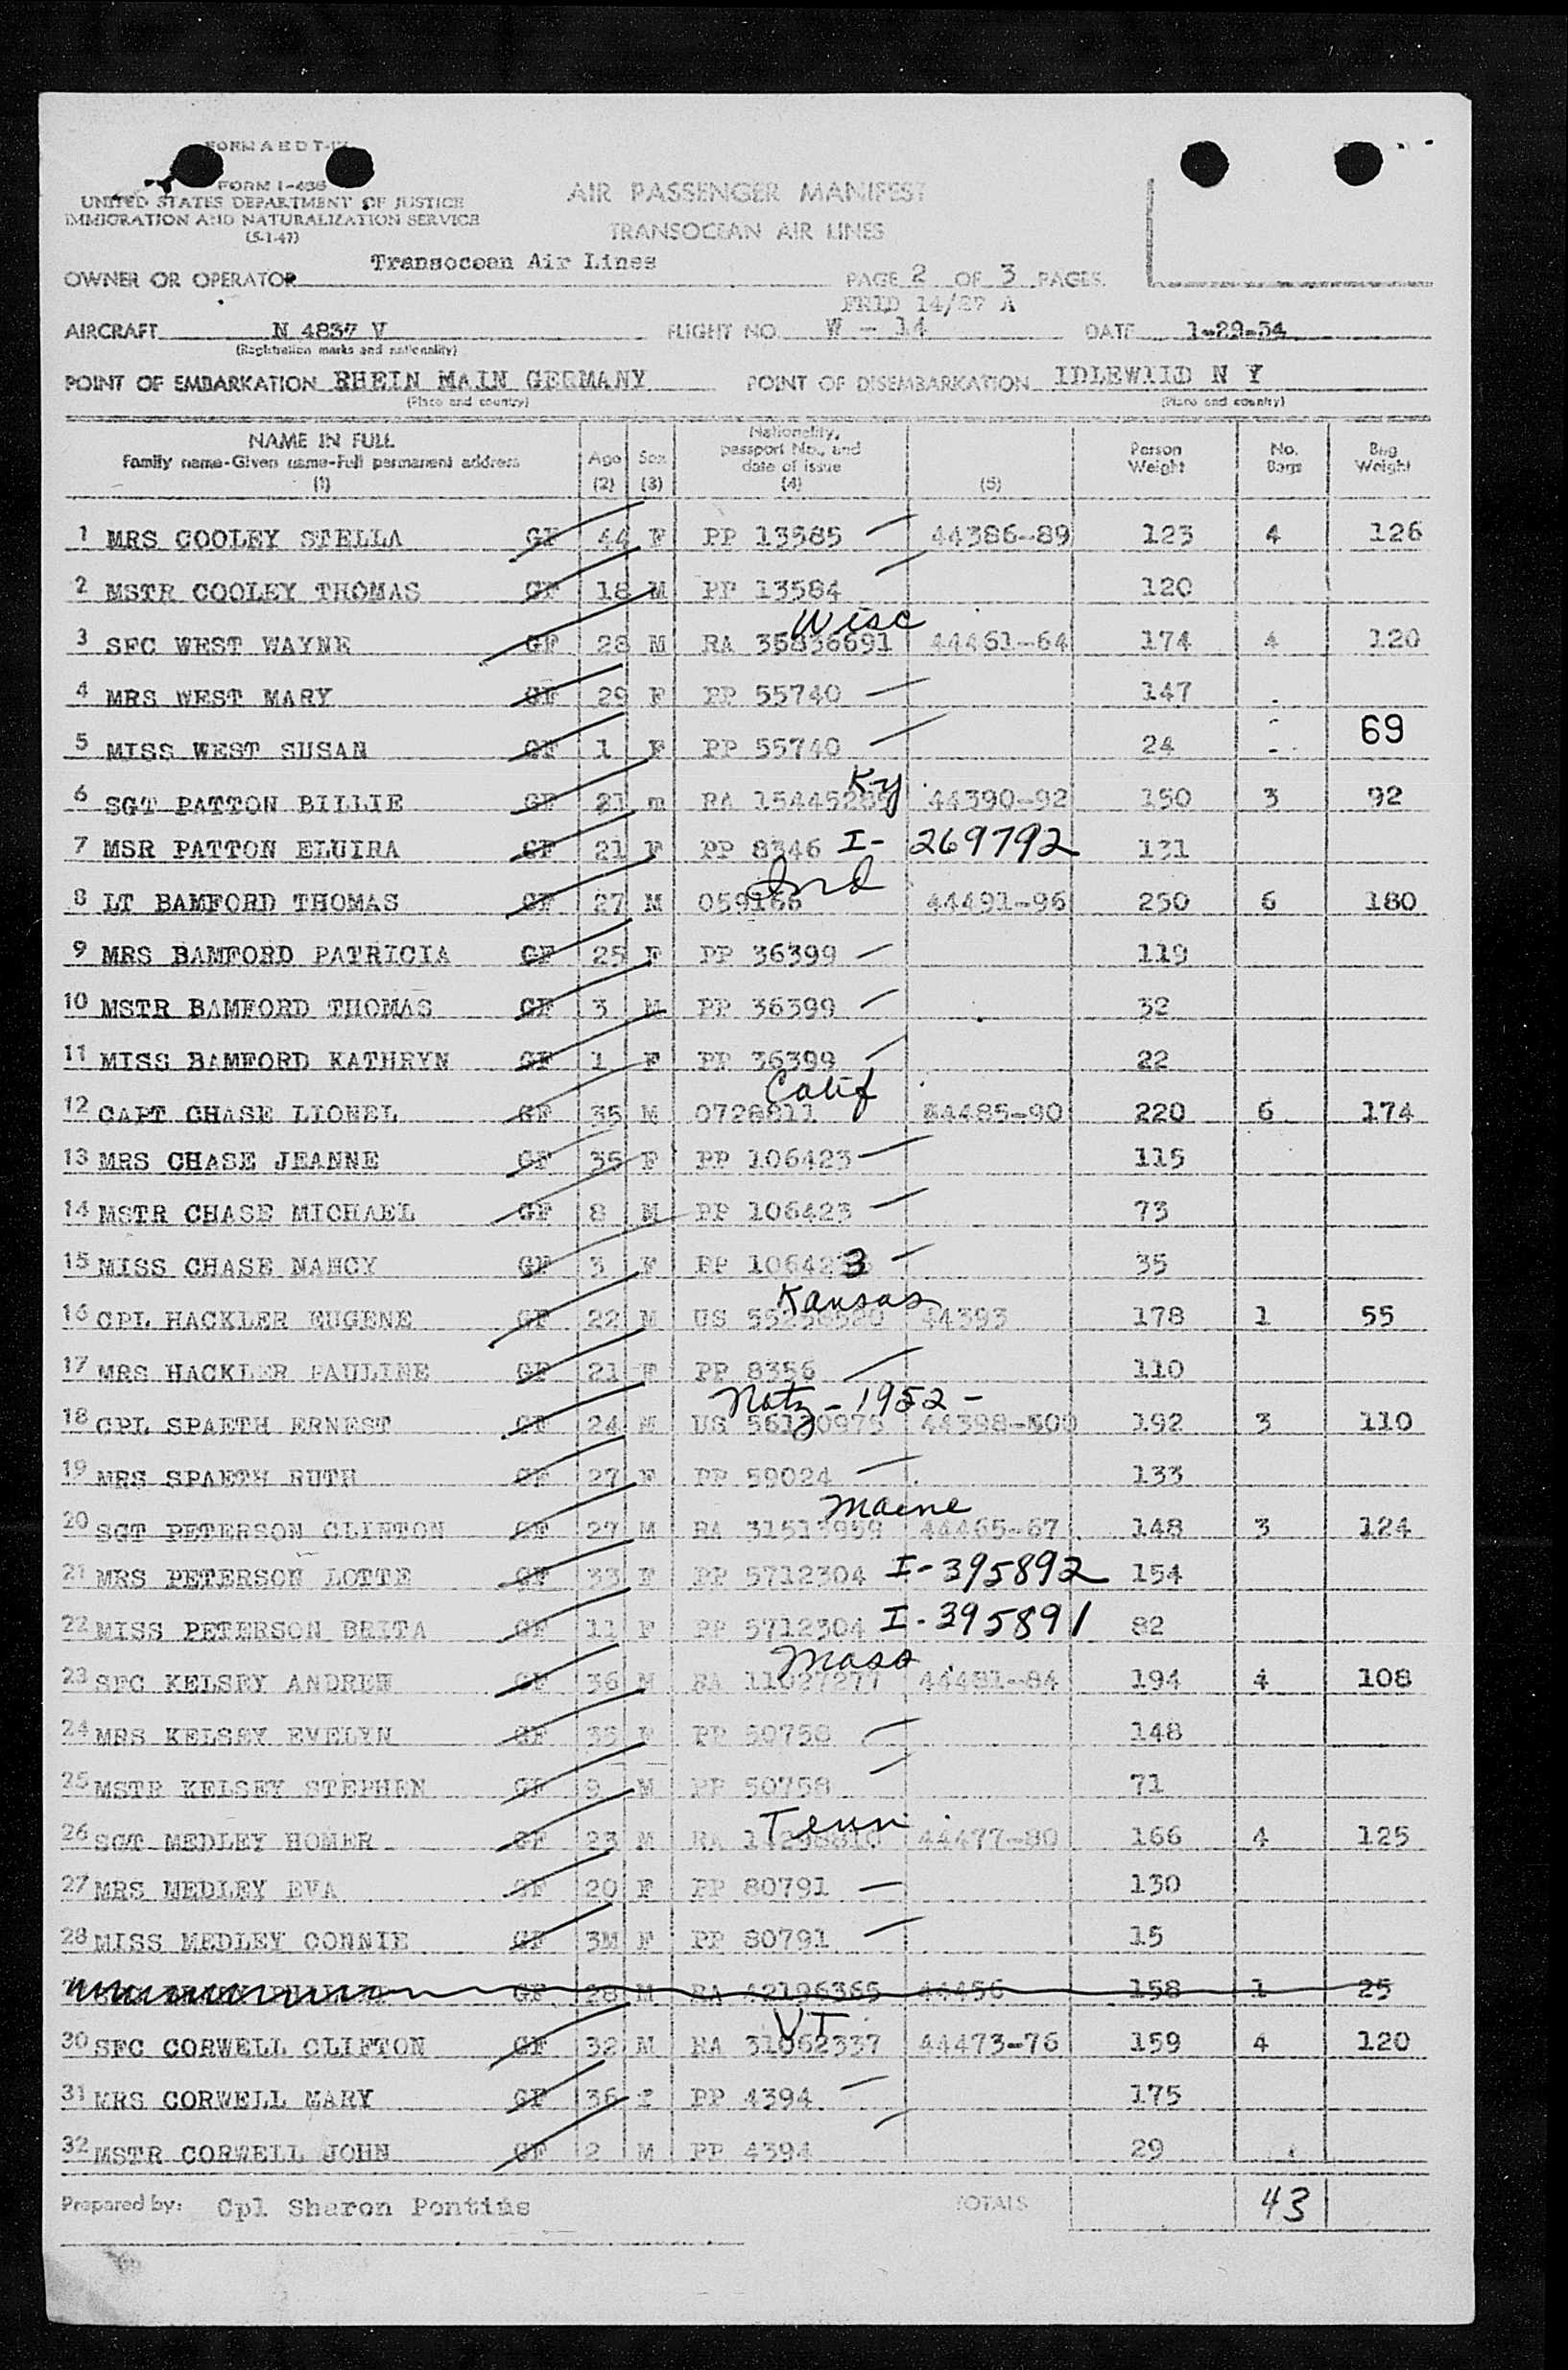 FORM A E D T-
FORM I-436
UNITED STATES DEPARTMENT OF JUSTICE
IMMIGRATION AND NATURALIZATION SERVICE
(5-1-47)
AIR PASSENGER MANIFEST
TRANSOCEAN AIR LINES
OWNER OR OPERATOR Transocean Air Lines PAGE 2 OF 3 PAGES
FRID 14/27 A
AIRCRAFT N 4837 V FLIGHT NO. W - 14 DATE 1-29-54
(Registration marks and nationality)
POINT OF EMBARKATION RHEIN MAIN GERMANY POINT OF DISEMBARKATION IDLEWILD N Y
(Place and country) (Place and country)
NAME IN FULL Family name-Given name-Full permanent address (1) Age (2) Sex (3) Nationality, passport No., and date of issue (4) (5) Person Weight No. Bags Bag Weight
1 MRS COOLEY STELLA GF 44 F PP 13585 44386-89 123 4 126
2 MSTR COOLEY THOMAS GF 18 M PP 13584 120
Wisc
3 SFC WEST WAYNE GF 28 M RA 35836691 44461-64 174 4 120
4 MRS WEST MARY GF 29 F PP 55740 147
5 MISS WEST SUSAN GF 1 F PP 55740 24 69
Ky
6 SGT PATTON BILLIE GF 21 m RA 44390-92 150 3 92
7 MSR PATTON ELUIRA GF 21 F PP 8346 I- 269792 131
Ind
8 LT BAMFORD THOMAS GF 27 M 059166 44491-96 250 6 180
9 MRS BAMFORD PATRICIA GF 25 F PP 36399 119
10 MSTR BAMFORD THOMAS GF 3 M PP 36399 32
11 MISS BAMFORD KATHRYN GF 1 F PP 36399 22
Calif
12 CAPT CHASE LIONEL GF 35 M 0728811 44485-90 220 6 174
13 MRS CHASE JEANNE GF 35 F PP 106423 115
14 MSTR CHASE MICHAEL GF 8 M PP 106423 73
15 MISS CHASE NANCY GF 3 F PP 106423 35
Kansas
16 CPL HACKLER EUGENE GF 22 M US 44393 178 1 55
17 MRS HACKLER PAULINE GF 21 F PP 8356 110
Natz - 1952 -
18 CPL SPAETH ERNEST GF 24 M US 44398-500 192 3 110
19 MRS SPAETH RUTH GF 27 F PP 59024 133
Maine
20 SGT PETERSON CLINTON GF 27 M RA 31513959 44465-67 148 3 124
21 MRS PETERSON LOTTE GF 33 F PP 5712304 I-395892 154
22 MISS PETERSON BRITA GF 11 F PP 5712304 I-395891 82
Mass
23 SFC KELSEY ANDREW GF 36 M RA 11027277 44481-84 194 4 108
24 MRS KELSEY EVELYN GF 35 F PP 50758 148
25 MSTR KELSEY STEPHEN GF 9 M PP 50758 71
Tenn
26 SGT MEDLEY HOMER GF 23 M RA 14298810 44477-80 166 4 125
27 MRS MEDLEY EVA GF 20 F PP 80791 130
28 MISS MEDLEY CONNIE GF 3M F PP 80791 15
GF 28 M RA 42196365 44456 158 1 25
VT
30 SFC CORWELL CLIFTON GF 32 M RA 31062337 44473-76 159 4 120
31 MRS CORWELL MARY GF 36 F PP 4394 175
32 MSTR CORWELL JOHN GF 2 M PP 4394 29
Prepared by: Cpl Sharon Pontius TOTALS 43